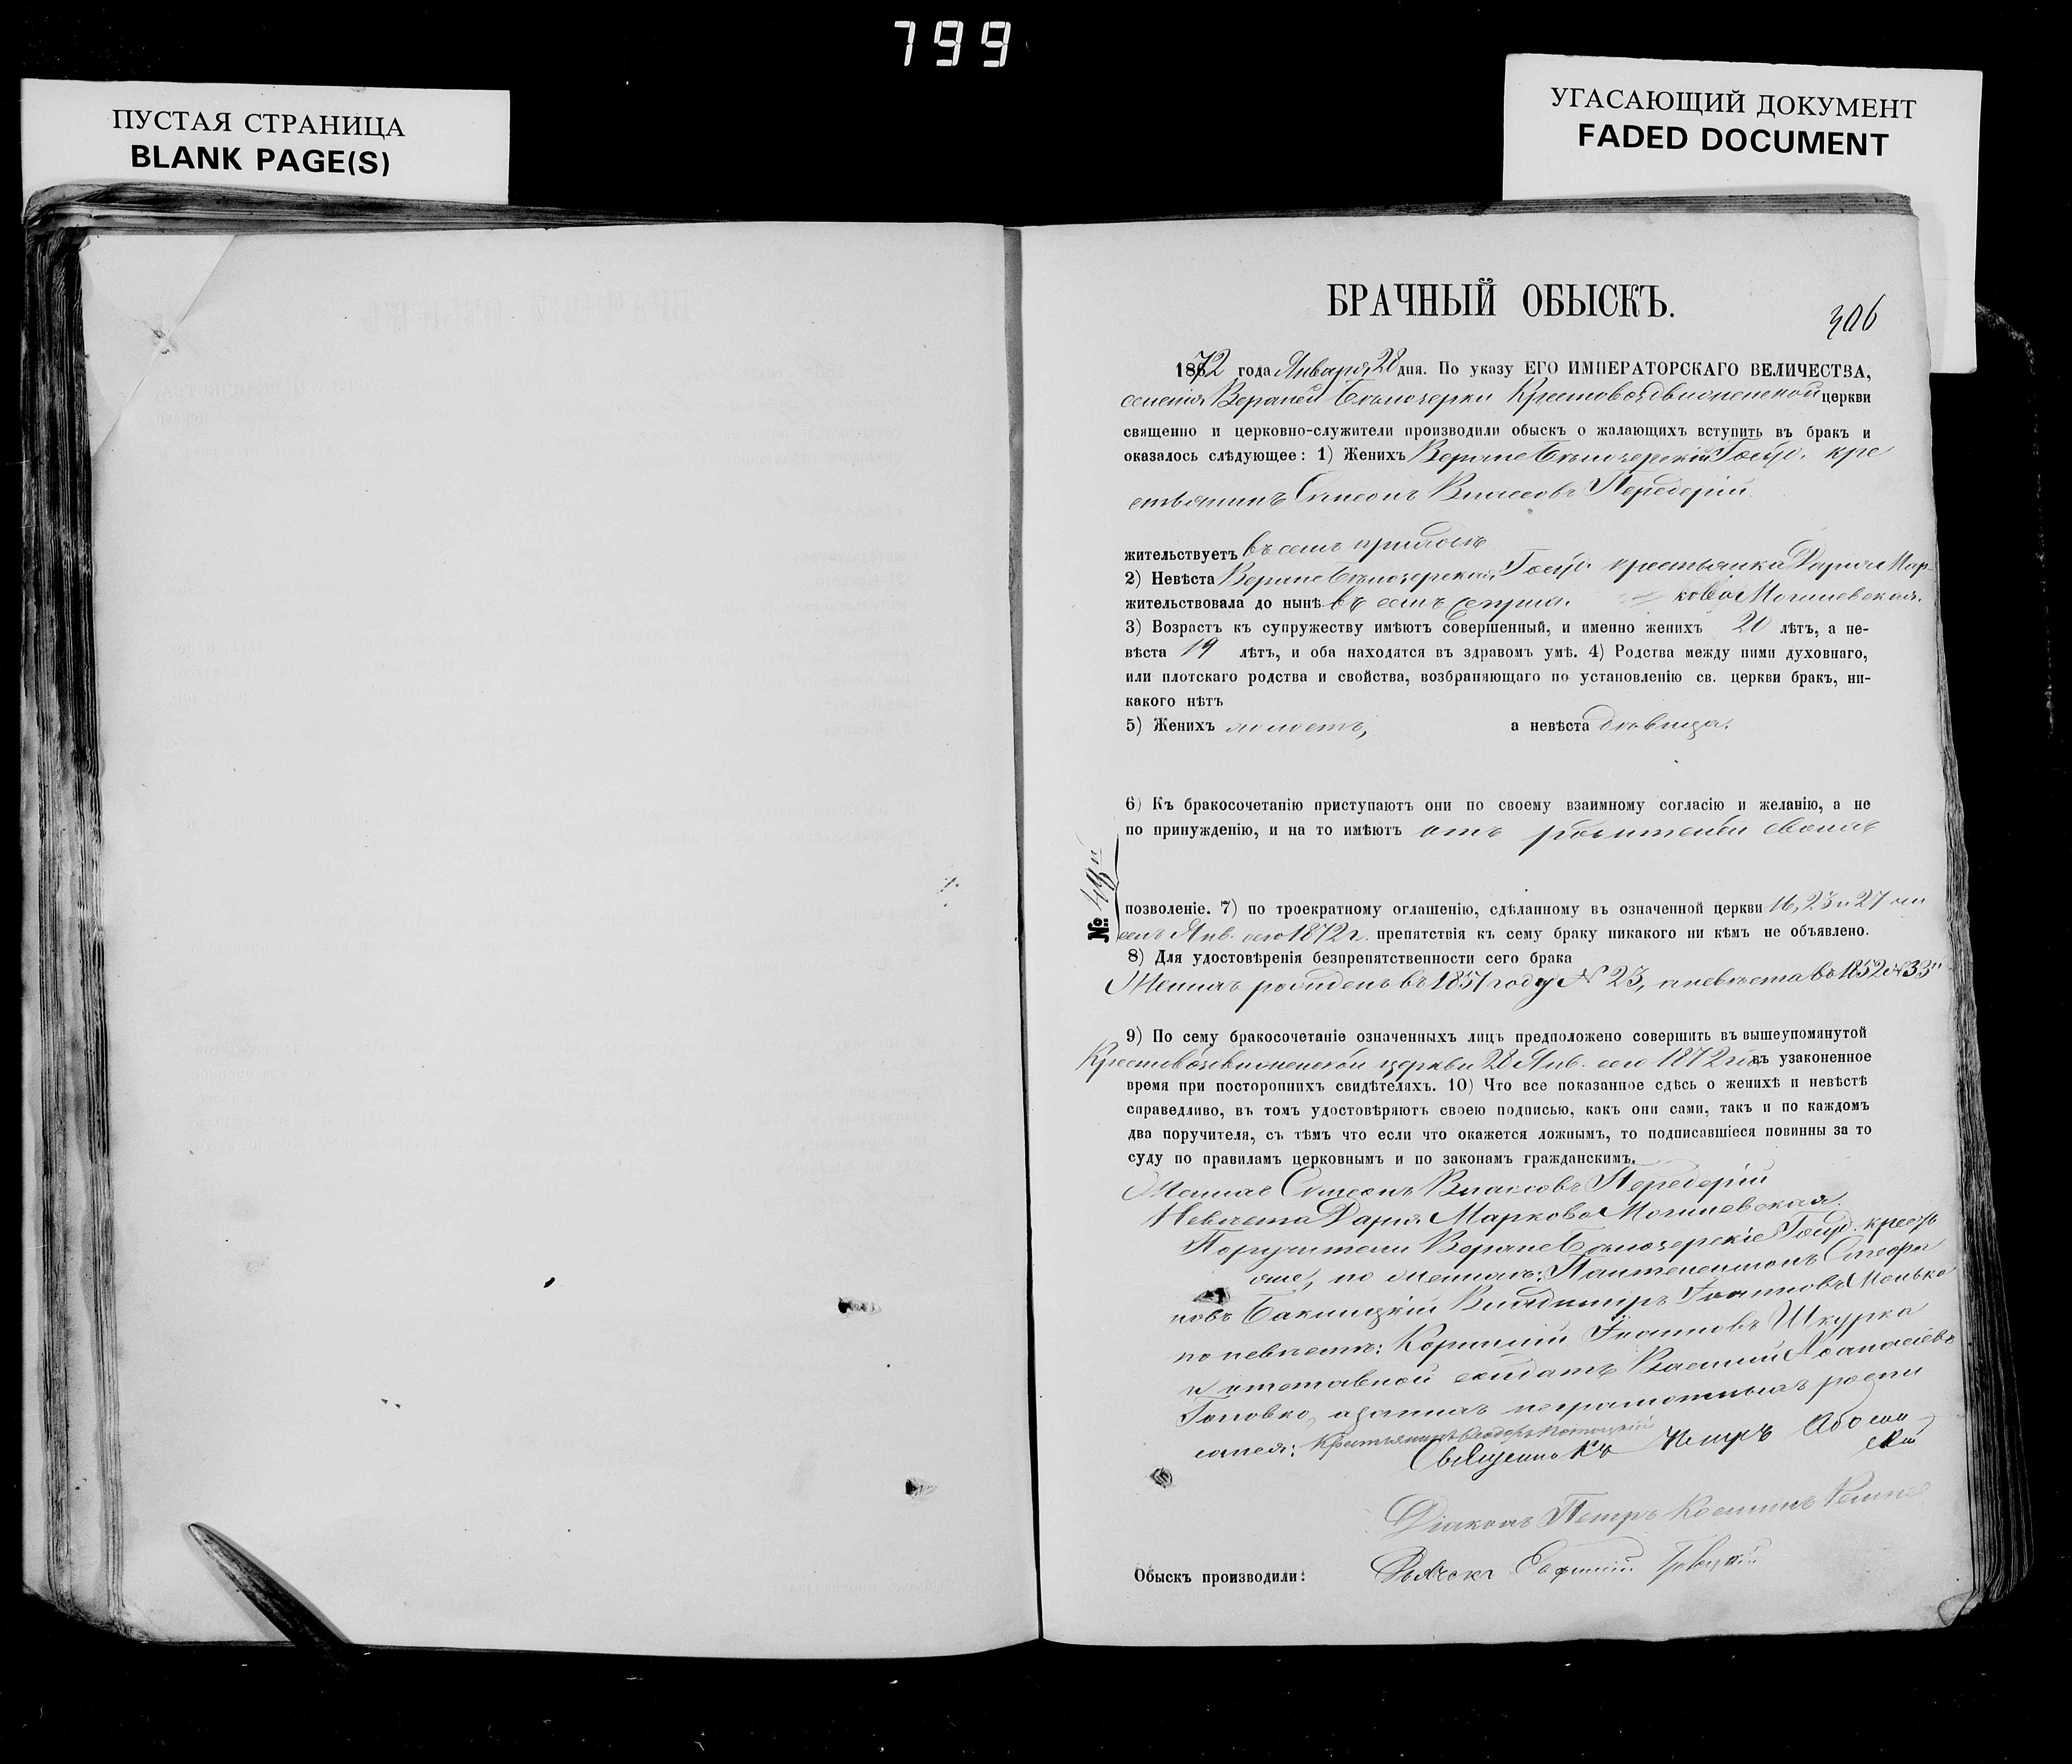 799
ПУСТАЯ СТРАНИЦА
BLANK PAGE(S)
УГАСАЮЩИЙ ДОКУМЕНТ
FADED DOCUMENT
БРАЧНЫЙ ОБЫСКЪ.
306
1872 года Января 28 дня. По указу ЕГО ИМПЕРАТОРСКАГО ВЕЛИЧЕСТВА,
селенія Верхней Бѣлозерки Крестовоздвиженской церкви
священно и церковно-служители производили обыскъ о жалающихъ вступить въ бракъ и
оказалось слѣдующее: 1) Женихъ Верхне Бѣлозерскій Госуд. кре
стьянинъ Симеонъ Власовъ Передерій
жительствуетъ въ семъ приходѣ
2) Невѣста Верхне Бѣлозерская Госуд. крестьянка Дарія Мар-
жительствовала до нынѣ въ семъ кова Могилевская.
3) Возрастъ къ супружеству имѣютъ совершенный, и именно женихъ 20 лѣтъ, а не-
вѣста 19 лѣтъ, и оба находятся въ здравомъ умѣ. 4) Родства между ними духовнаго,
или плотскаго родства и свойства, возбраняющаго по установленію св. церкви бракъ, ни-
какого нѣтъ
5) Женихъ холостъ, а невѣста дѣвица.
6) Къ бракосочетанію приступаютъ они по своему взаимному согласію и желанію, а не
по принужденію, и на то имѣютъ отъ родителей своихъ
№
позволеніе. 7) по троекратному оглашенію, сдѣланному въ означенной церкви 16, 23 и 27 чи
селъ Янв. сего 1872 г. препятствія къ сему браку никакого ни кѣмъ не объявлено.
8) Для удостовѣренія безпрепятственности сего брака
Женихъ рожденъ въ 1851 году № 23, а невѣста въ 1852 № 33й
9) По сему бракосочетаніе означенныхъ лицъ предположено совершить въ вышеупомянутой
Крестовоздвиженской церкви 28 Янв. сего 1872 года въ узаконенное
время при постороннихъ свидѣтеляхъ. 10) Что все показанное сдѣсь о женихѣ и невѣстѣ
справедливо, въ томъ удостовѣряютъ своею подписью, какъ они сами, такъ и по каждомъ
два поручителя, съ тѣмъ что если что окажется ложнымъ, то подписавшіеся повинны за то
суду по правиламъ церковнымъ и по законамъ гражданскимъ.
Женихъ Симеонъ Власовъ Передерій
Невѣста Дарія Маркова Могилевская
Поручители Верхне Бѣлозерскіе Госуд. кресть
яне, по женихѣ: Пантелеимонъ Стефа
новъ Владиміръ Іоанновъ
по невѣстѣ: Корнилій Іоанновъ Шкурка
и отставной солдатъ Василій Аѳанасіевъ
Головко, а за нихъ неграмотныхъ роспи
сался: Крестьянинъ
Священникъ Петръ
Діаконъ Петръ
Обыскъ производили: Дьячокъ Евфимій